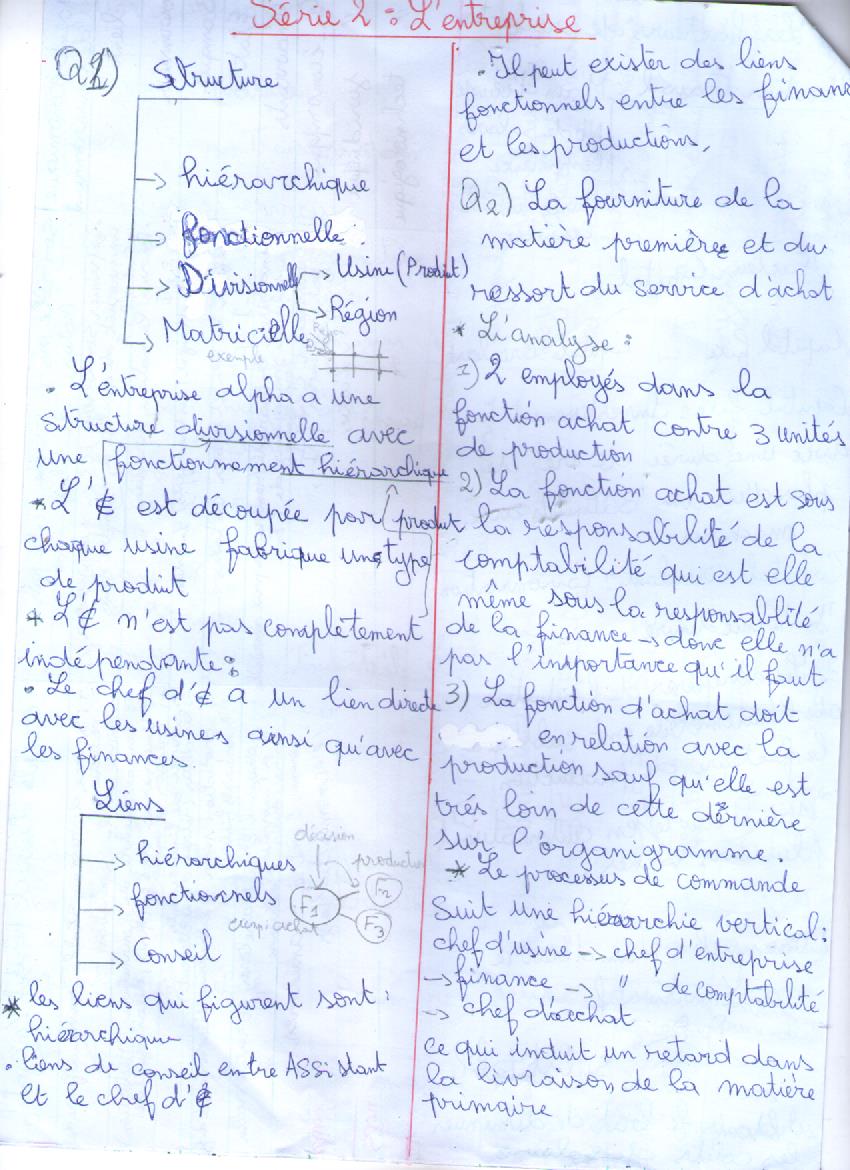 Série 2 : L'entreprise
Q1) Structure
hiérarchique
fonctionnelle.
Divisionnelle
Usine (Produit)
Région
Matricielle
exemple
. L'entreprise alpha a une
structure divisionnelle avec
une fonctionnement hiérarchique
* L'€ est découpée par produit
chaque usine fabrique un type
de produit
* L'€ n'est pas complètement
indépendante :
. Le chef d'€ a un lien directe
avec les usines ainsi qu'avec
les finances.
Liens
hiérarchiques
fonctionnels
Conseil
décision
production
F1
F2
F3
achat
* les liens qui figurent sont :
hiérarchique
. liens de conseil entre ASSistant
et le chef d'€
. Il peut exister des liens
fonctionnels entre les finan
et les productions,
Q2) La fourniture de la
matière première et du
ressort du service d'achat
* L'analyse :
1) 2 employés dans la
fonction achat contre 3 unités
de production
2) La fonction achat est sous
la responsabilité de la
comptabilité qui est elle
même sous la responsablité
de la finance → donc elle n'a
pas l'importance qu'il faut
3) La fonction d'achat doit
en relation avec la
production sauf qu'elle est
trés loin de cette dernière
sur l'organigramme.
* Le processus de commande
suit une hiérarchie vertical :
chef d'usine → chef d'entreprise
→ finance → " de comptabilité
→ chef d'achat
ce qui induit un retard dans
la livraison de la matière
primaire